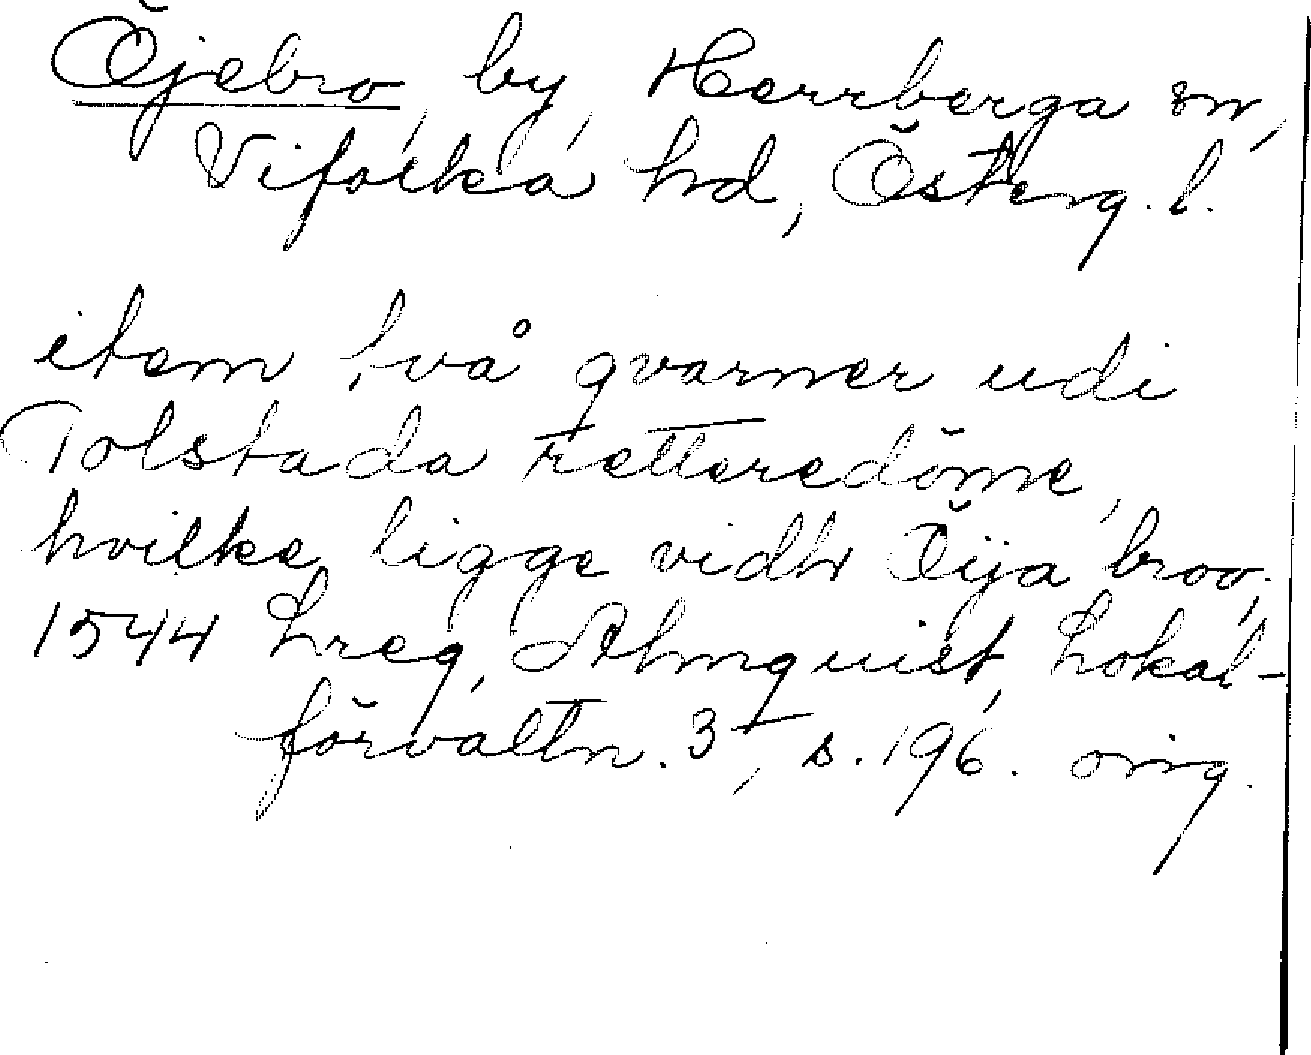 Öjebro, by, Herrberga sn,
Vifolka hd, Österg. l.
item två qvarner udi
Tolstada retteredöme,
hvilke ligge vidh Öija broo,
1544 Lreg, Almquist, Lokal-
förvaltn. 3, s. 196. orig.